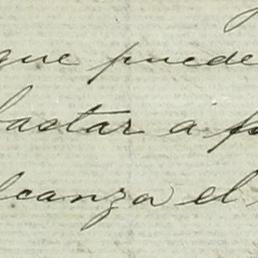 que puede
bastar á
lcanza el